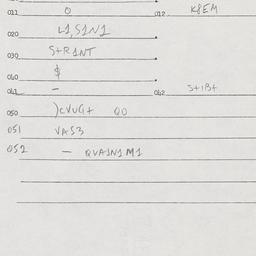 011 0 012 K8EM
020 L1,S1N1
030 S+R1NT
060 $
061 - 062 S+1B+
050 )CVUG+ QO
051 VAS3
052 - QVA1N1M1